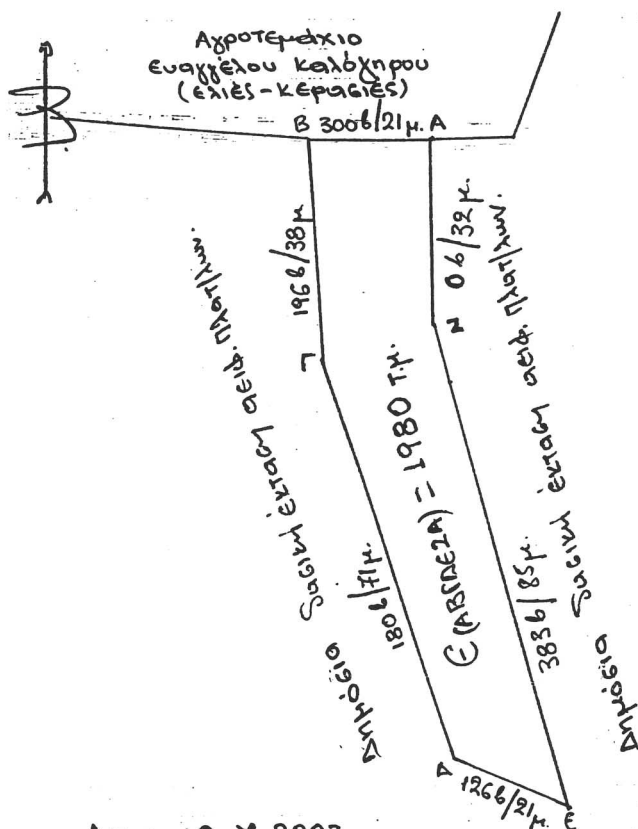 Αγροτεμάχιο
Ευαγγέλου Καλόγηρου
(ελιές-κερασιές)
Β 300β/21μ. Α
196β/38μ
0β/32μ.
Γ
Ζ
Δημόσια δασική έκταση αειφ. πλατ/λων.
180β/71μ.
Ε(ΑΒΓΔΕΖΑ) = 1980 τ.μ.
383β/85μ.
Δημόσια δασική έκταση αειφ. πλατ/λων.
Δ
126β/21μ.
Ε